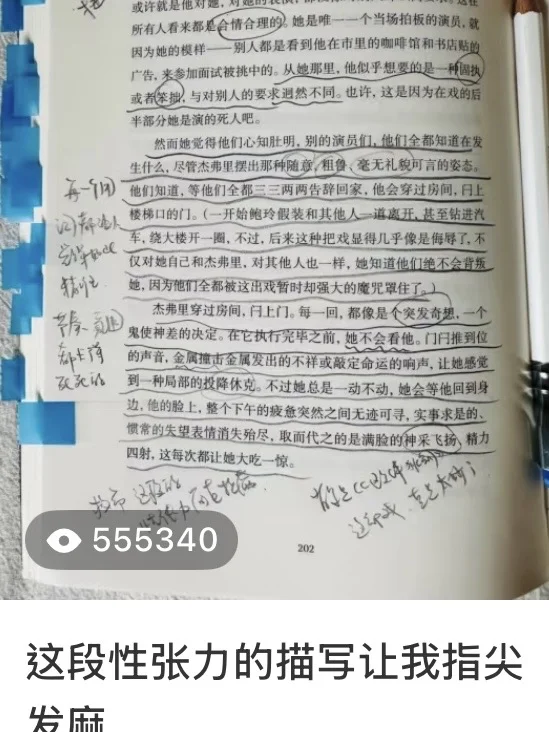 或许就是他对她，对她的表演，
所有人看来都是合情合理的。她是唯一一个当场拍板的演员，就
因为她的模样——别人都是看到他在市里的咖啡馆和书店贴的
广告，来参加面试被挑中的。从她那里，他似乎想要的是一种固执
或者笨拙，与对别人的要求迥然不同。也许，这是因为在戏的后
半部分她是演的死人吧。
然而她觉得他们心知肚明，别的演员们，他们全都知道在发
生什么，尽管杰弗里摆出那种随意、粗鲁、毫无礼貌可言的姿态。
他们知道，等他们全都三三两两告辞回家，他会穿过房间，闩上
楼梯口的门。（一开始鲍玲假装和其他人一道离开，甚至钻进汽
车，绕大楼开一圈，不过，后来这种把戏显得几乎像是侮辱了，不
仅对她自己和杰弗里，对其他人也一样，她知道他们绝不会背叛
她，因为他们全都被这出戏暂时却强大的魔咒罩住了。）
杰弗里穿过房间，闩上门。每一回，都像是个突发奇想，一个
鬼使神差的决定。在它执行完毕之前，她不会看他。门闩推到位
的声音，金属撞击金属发出的不祥或敲定命运的响声，让她感觉
到一种局部的投降休克。不过她总是一动不动，她会等他回到身
边，他的脸上，整个下午的疲惫突然之间无迹可寻，实事求是的、
惯常的失望表情消失殆尽，取而代之的是满脸的神采飞扬、精力
四射，这每次都让她大吃一惊。
每一个
555340
202
这段性张力的描写让我指尖
发麻